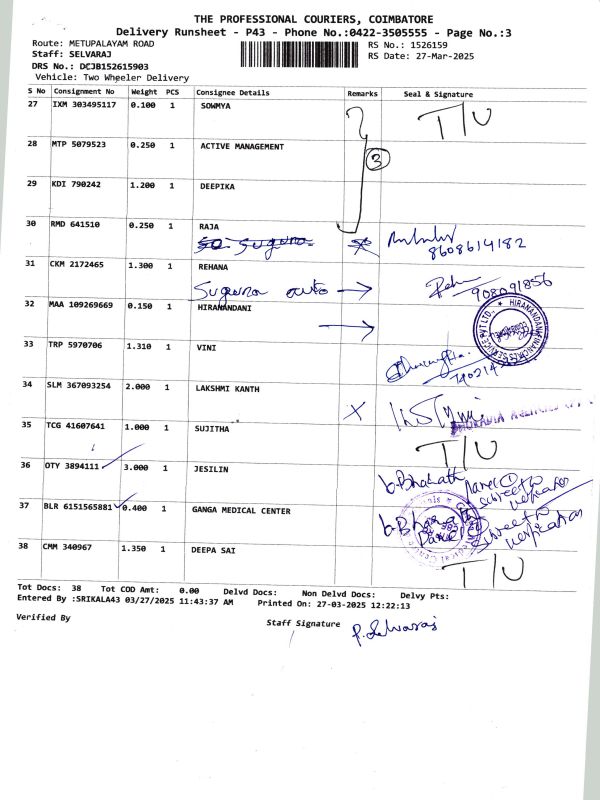 THE PROFESSIONAL COURIERS, COIMBATORE
Delivery Runsheet - P43 - Phone No.:0422-3505555 - Page No.:3
Route: METUPALAYAM ROAD
RS No.: 1526159
Staff: SELVARAJ
RS Date: 27-Mar-2025
DRS No.: DCJB152615903
Vehicle: Two Wheeler Delivery
S No Consignment No Weight PCS Consignee Details Remarks Seal & Signature
27 IXM 303495117 0.100 1 SOWMYA T/U
28 MTP 5079523 0.250 1 ACTIVE MANAGEMENT
3
29 KDI 790242 1.200 1 DEEPIKA
30 RMD 641510 0.250 1 RAJA
Suguna 8608614182
31 CKM 2172465 1.300 1 REHANA
Suguna auto → 908091856
32 MAA 109269669 0.150 1 HIRANANDANI
33 TRP 5970706 1.310 1 VINI
34 SLM 367093254 2.000 1 LAKSHMI KANTH X
35 TCG 41607641 1.000 1 SUJITHA T/U
36 OTY 3894111 3.000 1 JESILIN
b.Bharath Panel ①
37 BLR 6151565881 0.400 1 GANGA MEDICAL CENTER
38 CMM 340967 1.350 1 DEEPA SAI T/U
Tot Docs: 38 Tot COD Amt: 0.00 Delvd Docs: Non Delvd Docs: Delvy Pts:
Entered By :SRIKALA43 03/27/2025 11:43:37 AM Printed On: 27-03-2025 12:22:13
Verified By
Staff Signature P. Selvaraj